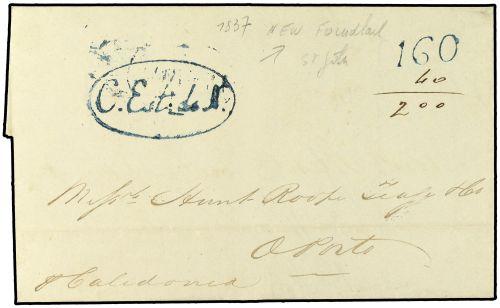 1837 NEW Foundland
St John
160
40
200
C. Est. de N.
Messrs Hunt Roope Teage & Co
O Porto
p Caledonia